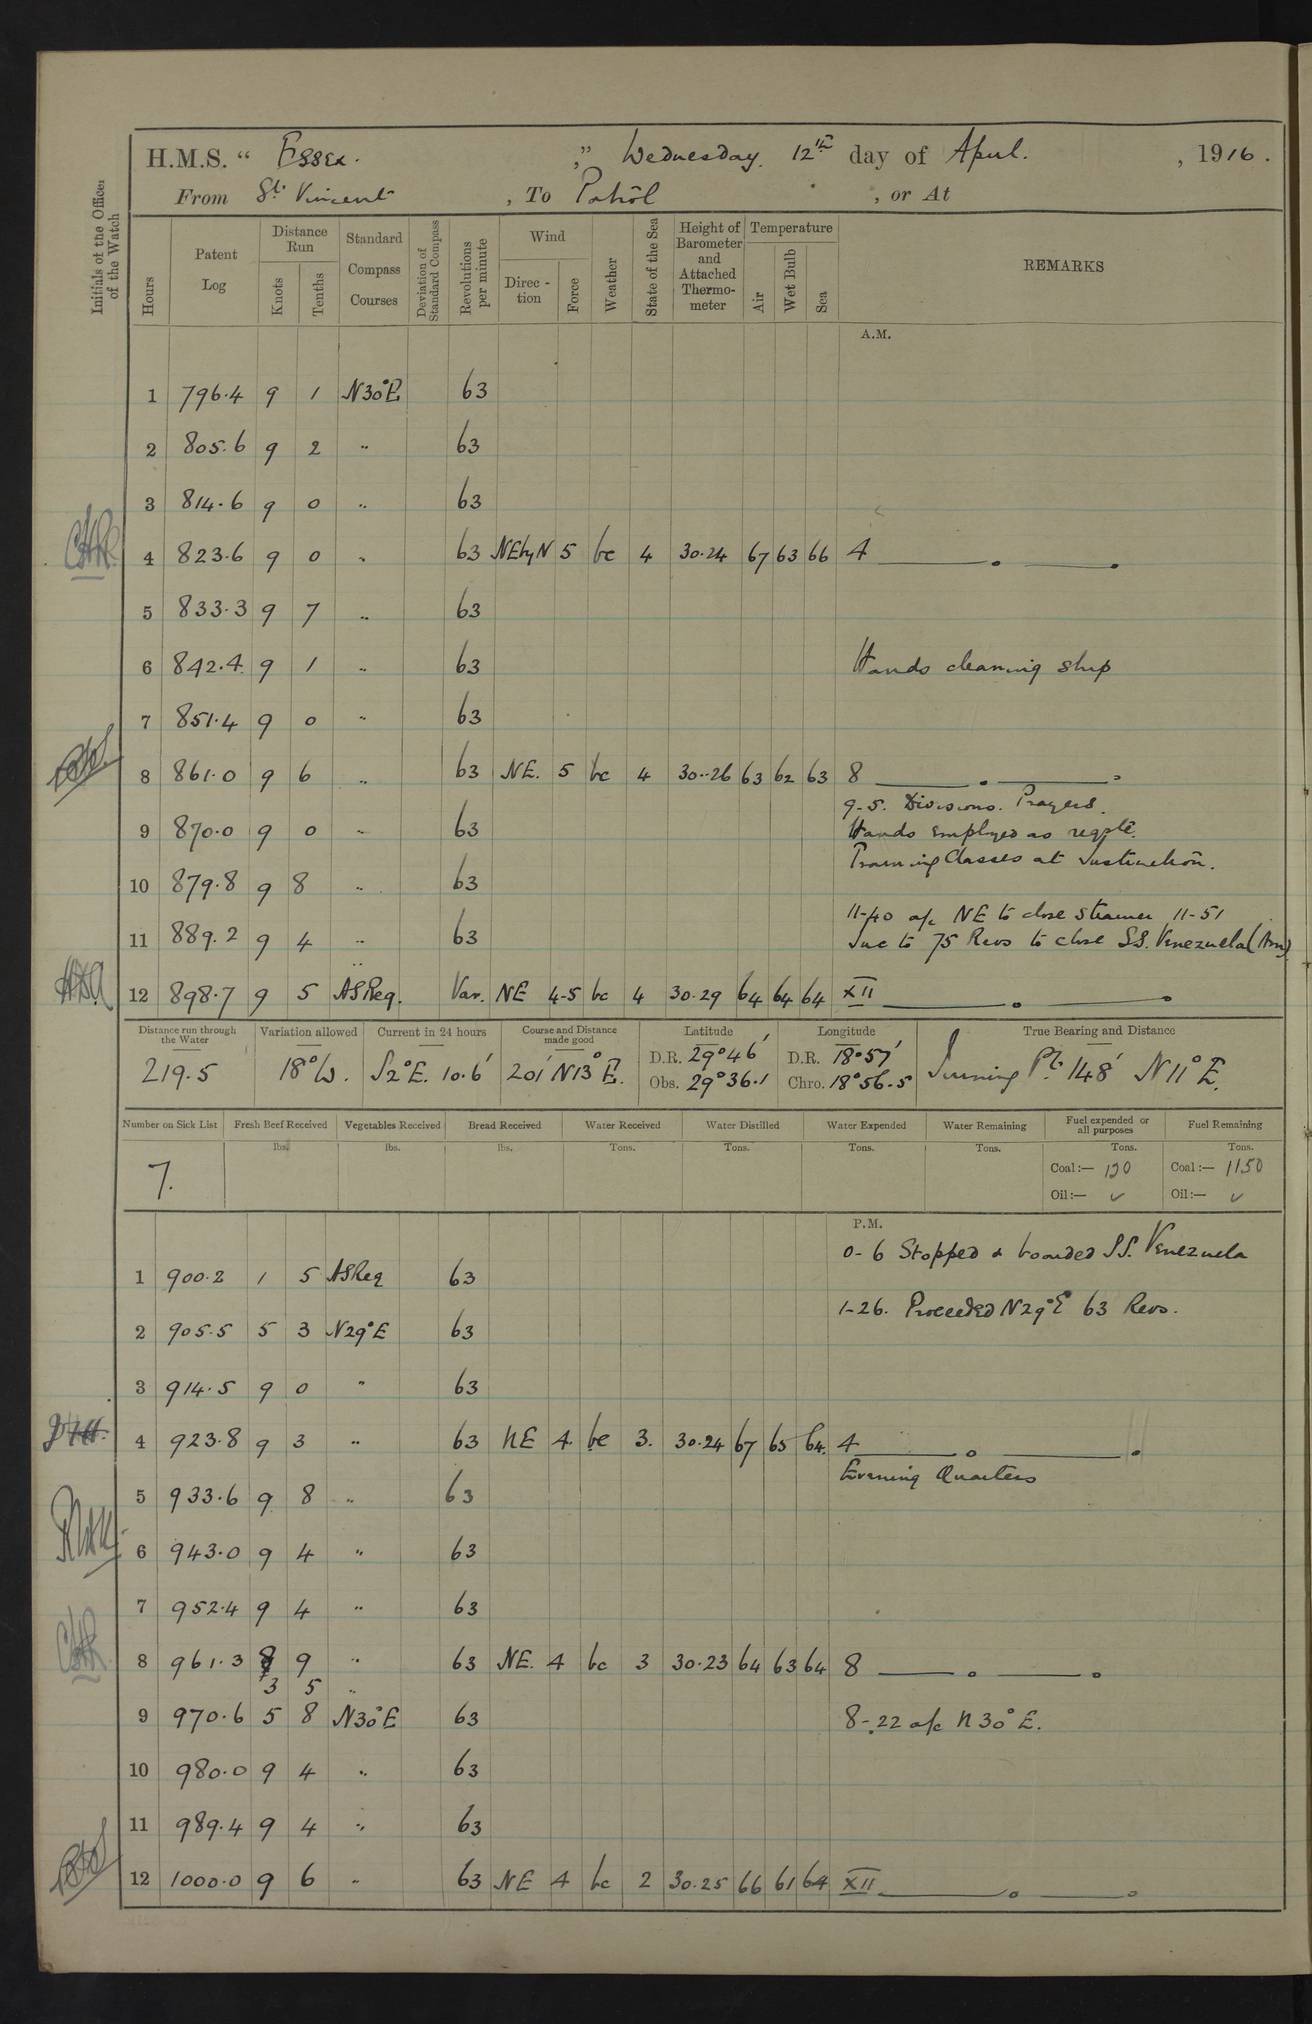 H.M.S. " Essex. ," Wednesday. 12th day of April. , 1916.
From St. Vincent , To Patrol , or At
Initials of the Officer of the Watch
Hours Patent Log Distance Run Knots Tenths Standard Compass Courses Deviation of Standard Compass Revolutions per minute Wind Direc-tion Force Weather State of the Sea Height of Barometer and Attached Thermo-meter Temperature Air Wet Bulb Sea REMARKS
A.M.
1 796.4 9 1 N30°E 63
2 805.6 9 2 " 63
3 814.6 9 0 " 63
4 823.6 9 0 " 63 NEbyN 5 bc 4 30.24 67 63 66 4
5 833.3 9 7 " 63
6 842.4 9 1 " 63 Hands cleaning ship
7 851.4 9 0 " 63
8 861.0 9 6 " 63 NE. 5 bc 4 30.26 63 62 63 8
9-5. Divisions. Prayers.
9 870.0 9 0 " 63 Hands employed as reqste.
Training Classes at Instruction.
10 879.8 9 8 " 63
11-40 a/c NE to close steamer 11-51
11 889.2 9 4 " 63 Inc to 75 Revs to close S.S. Venezuela (Am)
12 898.7 9 5 ASReq. Var. NE 4-5 bc 4 30.29 64 64 64 XII
Distance run through the Water Variation allowed Current in 24 hours Course and Distance made good Latitude Longitude True Bearing and Distance
219.5 18°W. S2°E. 10.6' 201' N13°E. D.R. 29°46' D.R. 18°57' Pt. 148' N11°E.
Obs. 29°36.1 Chro. 18°56.5
Number on Sick List Fresh Beef Received Vegetables Received Bread Received Water Received Water Distilled Water Expended Water Remaining Fuel expended or all purposes Fuel Remaining
lbs. lbs. lbs. Tons. Tons. Tons. Tons. Tons. Tons.
7. Coal:— 120 Coal:— 1150
Oil:— ✓ Oil:— ✓
P.M.
0-6 Stopped & boarded S.S. Venezuela
1 900.2 1 5 ASReq 63
1-26. Proceeded N29°E 63 Revs.
2 905.5 5 3 N29°E 63
3 914.5 9 0 " 63
4 923.8 9 3 " 63 NE 4 bc 3. 30.24 67 65 64. 4
Evening Quarters
5 933.6 9 8 " 63
6 943.0 9 4 " 63
7 952.4 9 4 " 63
8 961.3 8 9 " 63 NE. 4 bc 3 30.23 64 63 64 8
3 5 "
9 970.6 5 8 N30°E 63 8-22 a/c N30°E.
10 980.0 9 4 " 63
11 989.4 9 4 " 63
12 1000.0 9 6 " 63 NE 4 bc 2 30.25 66 61 64 XII